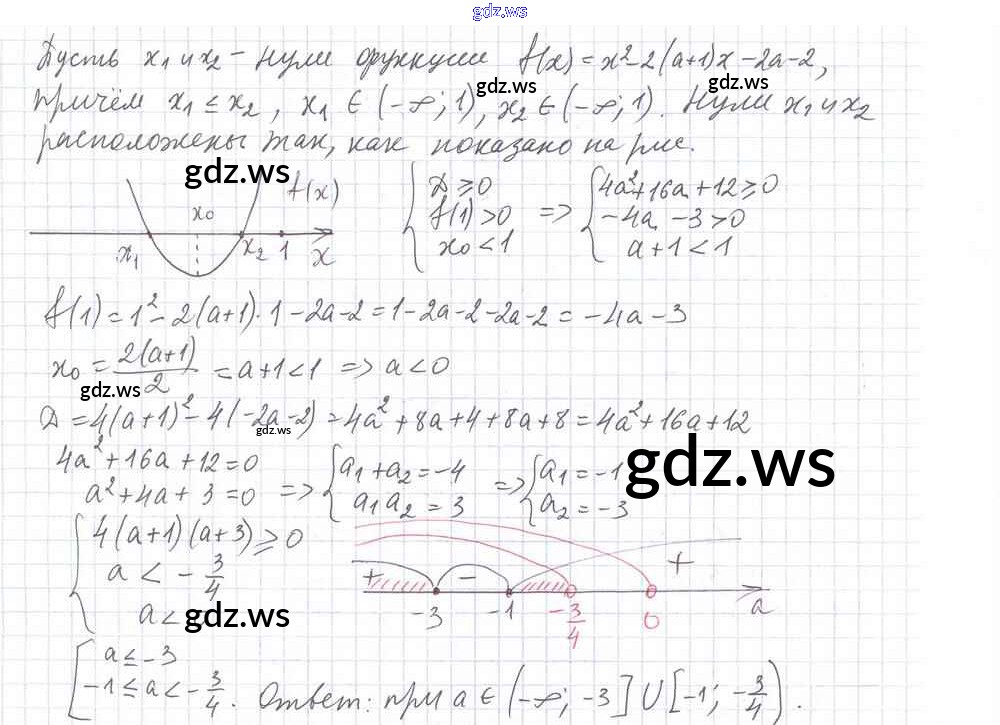 gdz.ws
Пусть x₁ и x₂ – нули функции f(x) = x² – 2(a+1)x – 2a – 2,
gdz.ws gdz.ws
причём x₁ ≤ x₂, x₁ ∈ (–∞; 1), x₂ ∈ (–∞; 1). Нули x₁ и x₂
расположены так, как показано на рис.
gdz.ws
f(x)
x₀
x₁ x₂ 1 x
{ D ≥ 0 => { 4a² + 16a + 12 ≥ 0
f(1) > 0 –4a – 3 > 0
x₀ < 1 a + 1 < 1
f(1) = 1² – 2(a+1)·1 – 2a – 2 = 1 – 2a – 2 – 2a – 2 = –4a – 3
x₀ = 2(a+1)/2 = a + 1 < 1 => a < 0
gdz.ws
D = 4(a+1)² – 4(–2a–2) = 4a² + 8a + 4 + 8a + 8 = 4a² + 16a + 12
gdz.ws
4a² + 16a + 12 = 0
a² + 4a + 3 = 0 => { a₁ + a₂ = –4 => { a₁ = –1
a₁a₂ = 3 a₂ = –3
gdz.ws
{ 4(a+1)(a+3) ≥ 0
a < –3/4
a <
gdz.ws
+ – +
–3 –1 –3/4 0 a
[ a ≤ –3
–1 ≤ a < –3/4. Ответ: при a ∈ (–∞; –3] ∪ [–1; –3/4).
gdz.ws